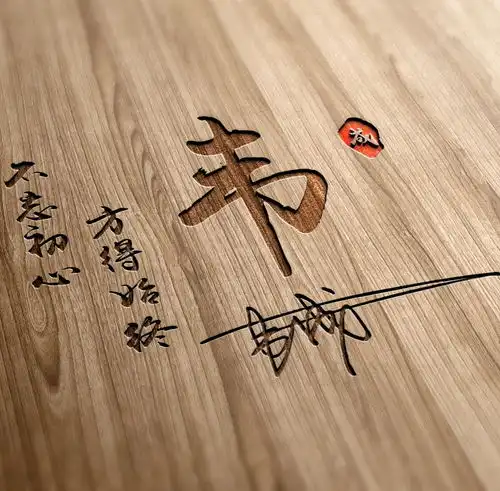 韦
不忘初心
方得始终